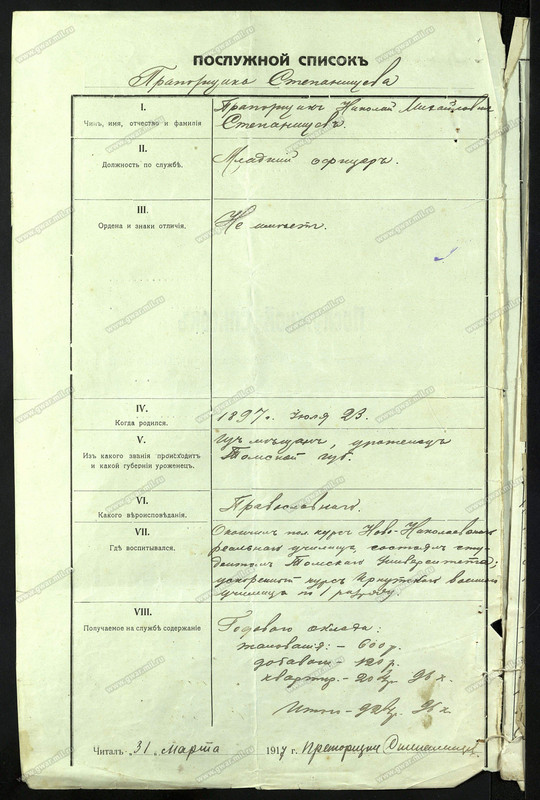 ПОСЛУЖНОЙ СПИСОКЪ
Прапорщика Степанищева
I.
Чинъ, имя, отчество и фамилія
Прапорщикъ Николай Михайловичъ
Степанищевъ.
II.
Должность по службѣ.
Младший офицеръ.
III.
Ордена и знаки отличія.
Не имѣетъ.
IV.
Когда родился.
1897 г. Июля 23.
V.
Изъ какого званія происходитъ
и какой губерніи уроженецъ.
Изъ мѣщанъ, уроженецъ
Томской губ.
VI.
Какого вѣроисповѣданія.
Православнаго.
VII.
Гдѣ воспитывался.
Окончилъ пол. курсъ Ново-Николаевскаго
реальнаго училища, состоялъ сту-
дентомъ Томскаго Университета;
ускоренный курсъ Иркутскаго военнаго
училища по 1 разряду.
VIII.
Получаемое на службѣ содержаніе
Годового оклада:
жалованія: - 600 р.
добавоч. - 120 р.
квартир. - 96 к.
Итого - 96 к.
Читалъ 31 Марта 1917 г. Прапорщикъ Степанищевъ
www.gwar.mil.ru